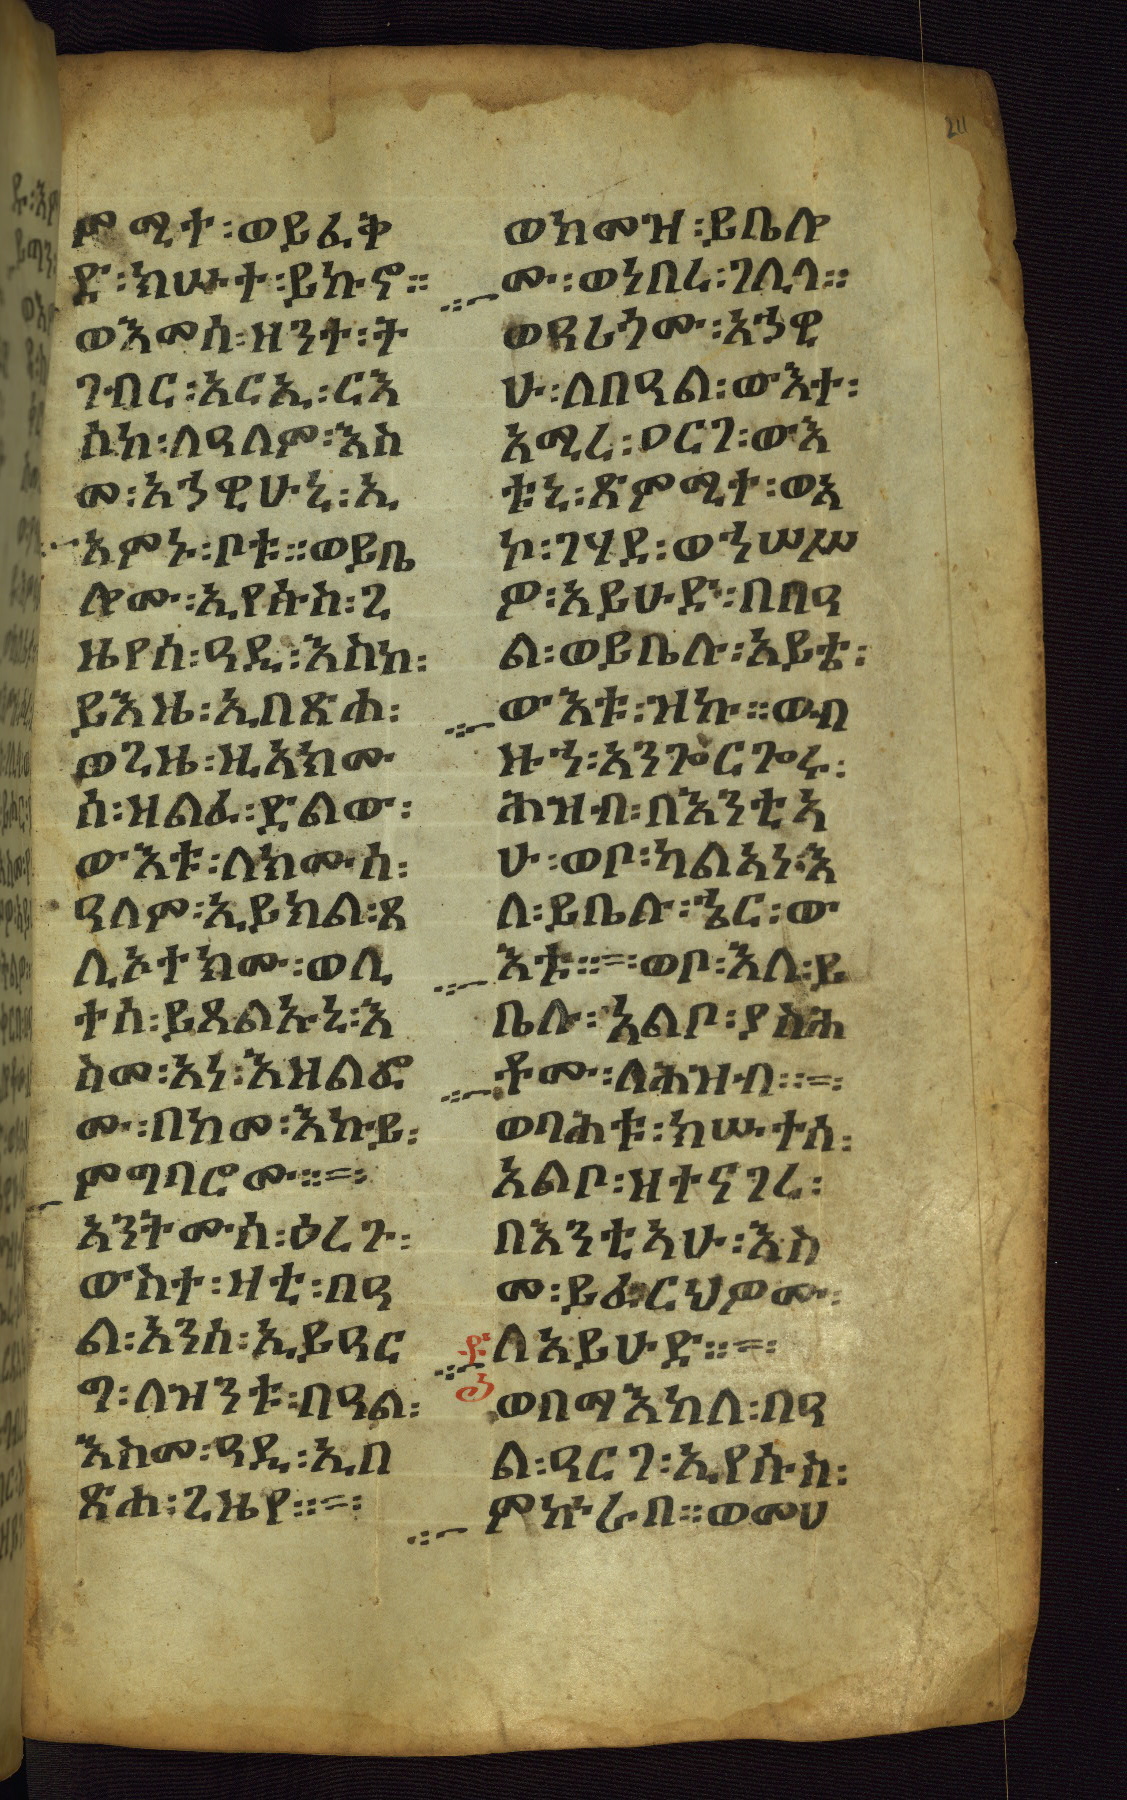 ምሚተ፡ወይፈቅ
ድ፡ክሡተ፡ይኩኖ።
ወእመሰ፡ዘንተ፡ት
ገብር፡አርኢ፡ርእ
ሰከ፡ለዓለም፡እስ
መ፡አኃዊሁኒ፡ኢ
አምኑ፡ቦቱ።ወይቤ
ሎሙ፡ኢየሱስ፡ጊ
ዜየሰ፡ዓዲ፡እስከ፡
ይእዜ፡ኢበጽሐ፡
ወጊዜ፡ዚአክሙ
ሰ፡ዘልፈ፡ድልው፡
ውእቱ፡ለክሙሰ፡
ዓለም፡ኢይክል፡ጸ
ሊኦተክሙ፡ወሊ
ተሰ፡ይጸልኡኒ፡እ
ስመ፡አነ፡እዘልፎ
ሙ፡በከመ፡እኩይ፡
ምግባሮሙ።=፡
አንትሙሰ፡ዕረጉ፡
ውስተ፡ዛቲ፡በዓ
ል፡አንሰ፡ኢይዓር
ግ፡ለዝንቱ፡በዓል፡
እስመ፡ዓዲ፡ኢበ
ጽሐ፡ጊዜየ።=፡
ወከመዝ፡ይቤሎ
ሙ፡ወነበረ፡ገሊላ።
ወዓሪጎሙ፡አኃዊ
ሁ፡ለበዓል፡ውእተ፡
አሚረ፡ዐርገ፡ውእ
ቱኒ፡ጽምሚተ፡ወአ
ኮ፡ገሃደ፡ወኀሠሥ
ዎ፡አይሁድ፡በበዓ
ል፡ወይቤሉ፡አይቴ፡
ውእቱ፡ዝኩ።ወብ
ዙኅ፡አንጐርጐሩ፡
ሕዝብ፡በእንቲአ
ሁ፡ወቦ፡ካልአነ፡እ
ለ፡ይቤሉ፡ኄር፡ው
እቱ።=፡ወቦ፡እለ፡ይ
ቤሉ፡አልቦ፡ያስሕ
ቶሙ፡ለሕዝብ፡፡=፡
ወባሕቱ፡ክሡተሰ፡
አልቦ፡ዘተናገረ፡
በእንቲአሁ፡እስ
መ፡ይፈርህዎሙ፡
ለአይሁድ።=፡
ወበማእከለ፡በዓ
ል፡ዓርገ፡ኢየሱስ፡
ምኵራበ።ወመሀ